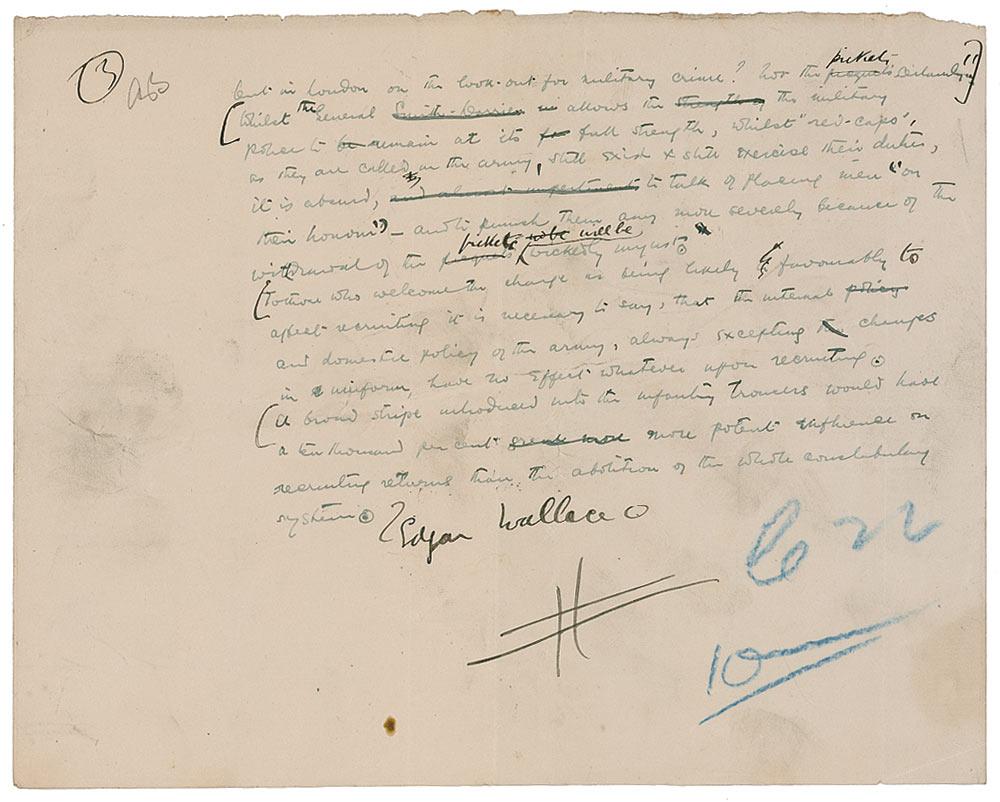 (3)
lent in London on the look-out for military crime? Not the pickets certainly!!
Whilst the General Smith-Dorrien allows the strength of the military
police to be remain at its full strength, whilst "red-caps",
as they are called in the army, still exist & still exercise their duties,
it is absurd, and almost impertinent to talk of placing men "on
their honour" – and to punish them any more severely because of the
withdrawal of the pickets will be wickedly unjust.
To those who welcome the change as being likely favourably to
affect recruiting it is necessary to say, that the internal policy
and domestic policy of the army, always excepting changes
in uniform, have no effect whatever upon recruiting.
A broad stripe introduced into the infantry trousers would have
a ten thousand per cent more potent influence on
recruiting returns than the abolition of the whole constabulary
system.
Edgar Wallace
22
10